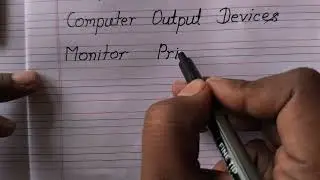 Computer Output Devices
Monitor Pri
FINE TIP